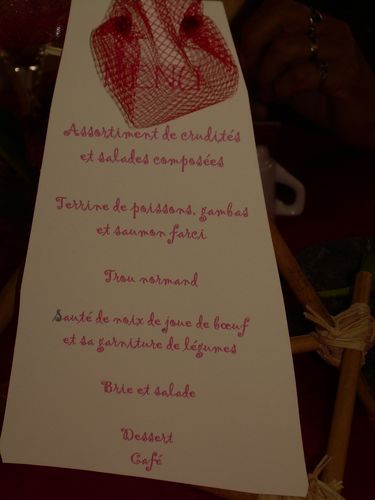 MENU
Assortiment de crudités
et salades composées
Terrine de poissons, gambas
et saumon farci
Trou normand
Sauté de noix de joue de bœuf
et sa garniture de légumes
Brie et salade
Dessert
Café